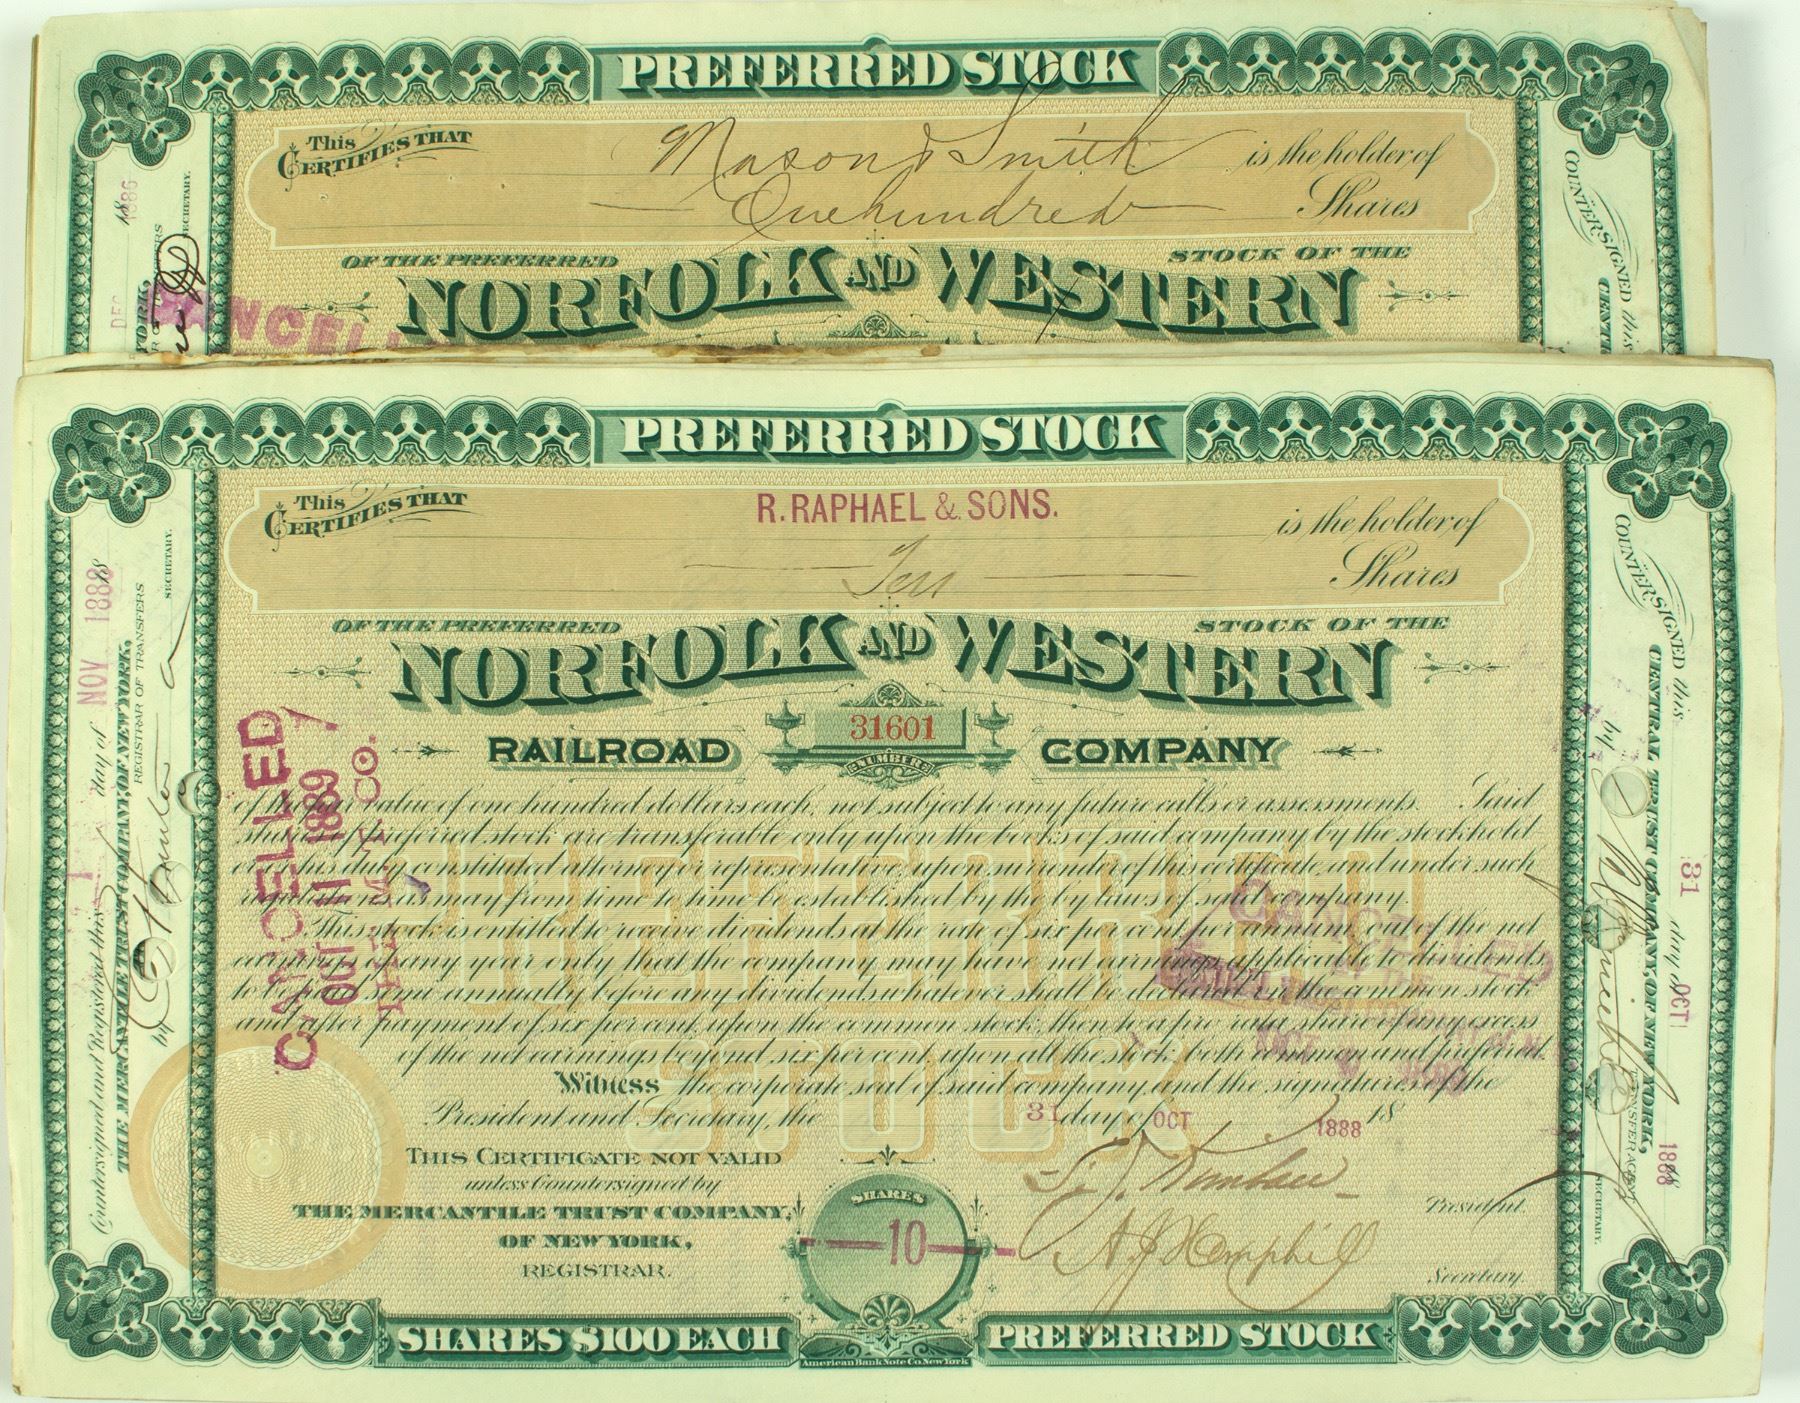 PREFERRED STOCK
This CERTIFIES THAT Mason & Smith is the holder of
One hundred Shares
OF THE PREFERRED STOCK OF THE
NORFOLK AND WESTERN
1886
DEC
SECRETARY.
NCELL
COUNTERSIGNED this
PREFERRED STOCK
This CERTIFIES THAT R. RAPHAEL & SONS. is the holder of
Ten Shares
OF THE PREFERRED STOCK OF THE
NORFOLK AND WESTERN
31601
RAILROAD NUMBER COMPANY
of the par value of one hundred dollars each, not subject to any future calls or assessments. Said
shares of preferred stock are transferable only upon the books of said company by the stockhold
er or his duly constituted attorney or representative, upon surrender of this certificate, and under such
regulations as may from time to time be established by the by laws of said company.
This stock is entitled to receive dividends at the rate of six per cent per annum, out of the net
earnings of any year only that the company may have net earnings applicable to dividends
to be paid semi annually before any dividends whatever shall be declared on the common stock
and after payment of six per cent, upon the common stock, then to a pro rata share of any excess
of the net earnings beyond six per cent, upon all the stock, both common and preferred.
Witness the corporate seal of said company and the signatures of the
President and Secretary, the 31 day of OCT 1888 18
PREFERRED
STOCK
THIS CERTIFICATE NOT VALID
unless Countersigned by
THE MERCANTILE TRUST COMPANY,
OF NEW YORK,
REGISTRAR.
SHARES
10
President.
A J Hemphill
Secretary.
SHARES $100 EACH
American Bank Note Co. New York
PREFERRED STOCK
Countersigned and Registered this 1 day of NOV 1888 18
THE MERCANTILE TRUST COMPANY, OF NEW YORK,
REGISTRAR OF TRANSFERS
by
SECRETARY.
CANCELLED
OCT 11 1889
COUNTERSIGNED this 31 day of OCT 1888
CENTRAL TRUST COMPANY, OF NEW YORK,
TRANSFER AGENT
by
SECRETARY.
CANCELLED